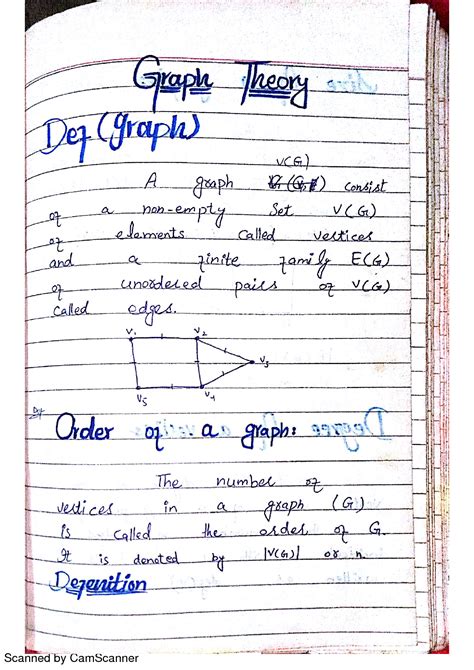 Graph Theory
Def (graph)
V(G)
A graph consist
of a non-empty Set V(G)
of elements called vertices
and a finite family E(G)
of unordered pairs of V(G)
called edges.
V1 V2
V3
V5 V4
Def
Order of a graph:
The number of
vertices in a graph (G)
is called the order of G.
It is denoted by |V(G)| or n
Defenition
Scanned by CamScanner